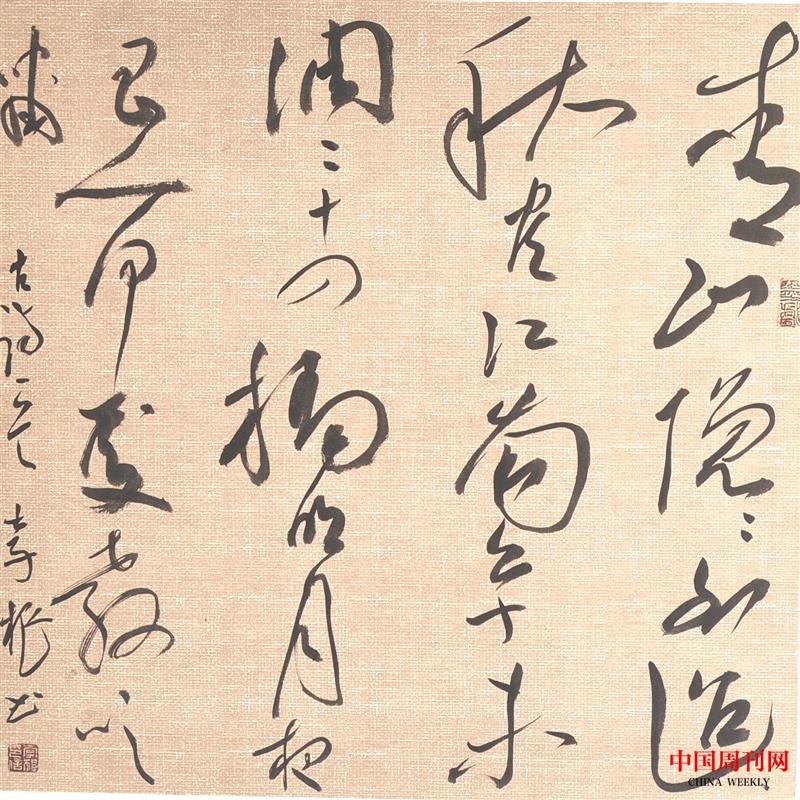 青山隐々水迢
秋尽江南草未
凋二十四橋明月夜
玉人何處教吹
箫 古诗一首 根书
中国周刊网
CHINA WEEKLY